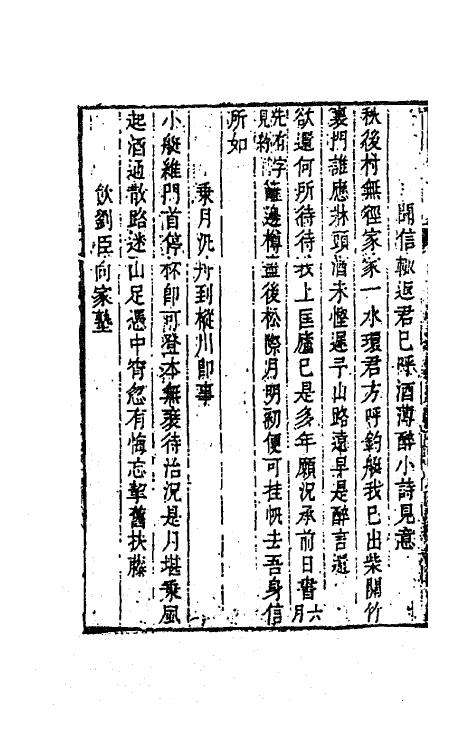 聞信輙返君已呼酒薄醉小詩見意
秋後村無徑家家一水環君方呼釣艇我已出柴關竹
裏門誰應牀頭酒未慳遲尋山路遠早是醉言還
欲還何所待待我上匡廬已是多年願況承前日書六月
先有字見 籬邊樽盡後松際月明初便可挂帆去吾身信
所如
乘月汎舟到樅川卽事
小艇維門首停杯卽可登本無裘待治況是月堪乘風
起酒過散路迷山足憑中宵忽有悔忘挈舊扶藤
飲劉臣向家塾